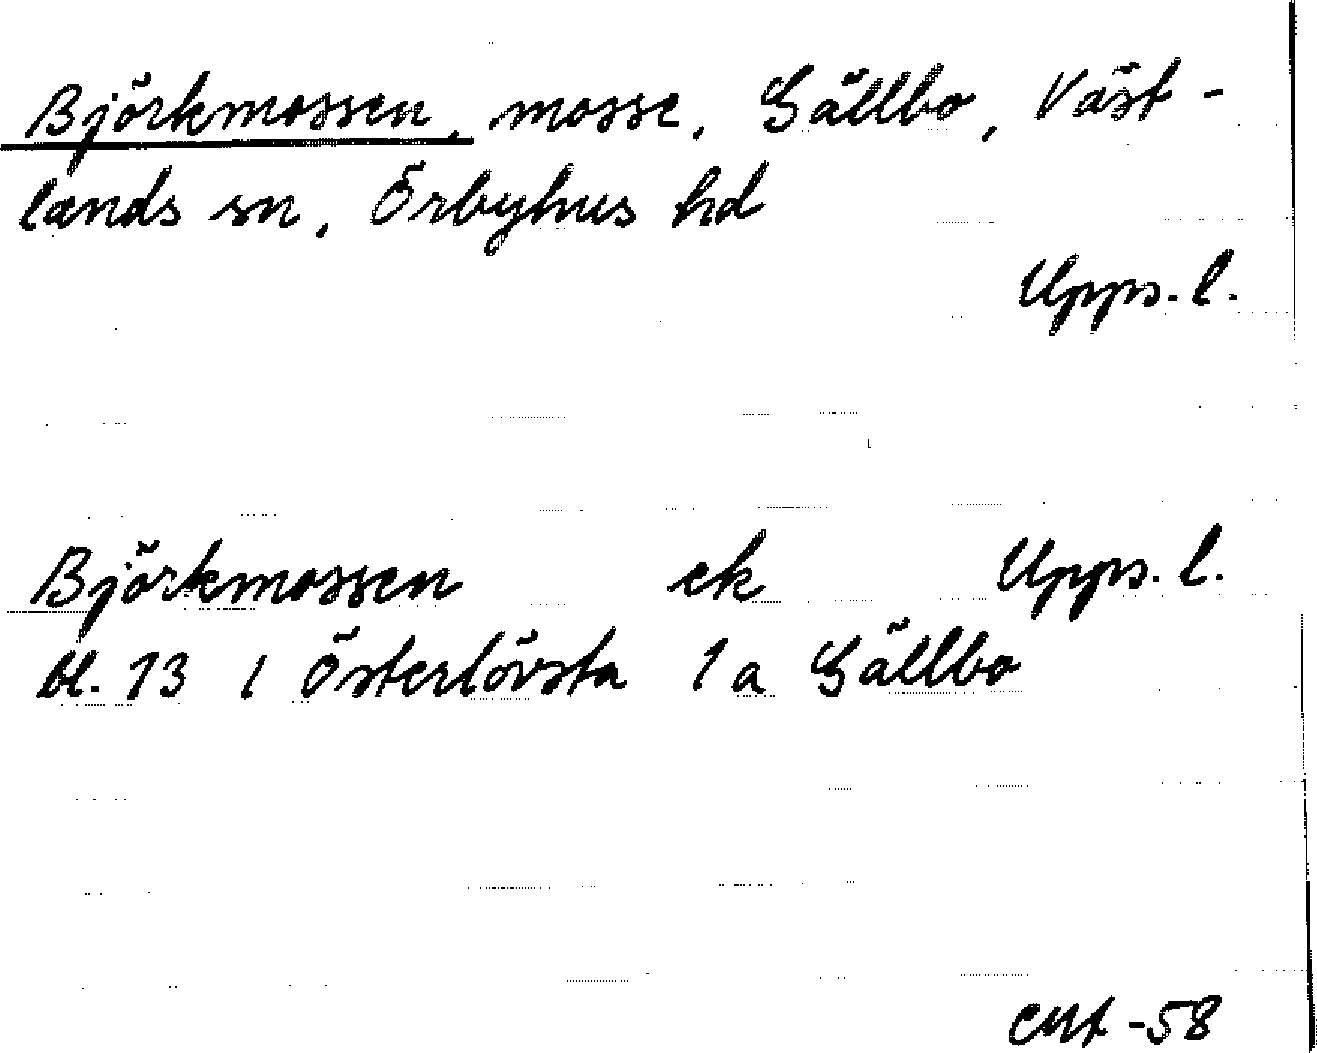 Björkmossen, mosse, Sällbo, Väst-
lands sn, Örbyhus hd
Upps. l.
Björkmossen ek Upps. l.
bl. 13 / Österlövsta 1a Sällbo
-58